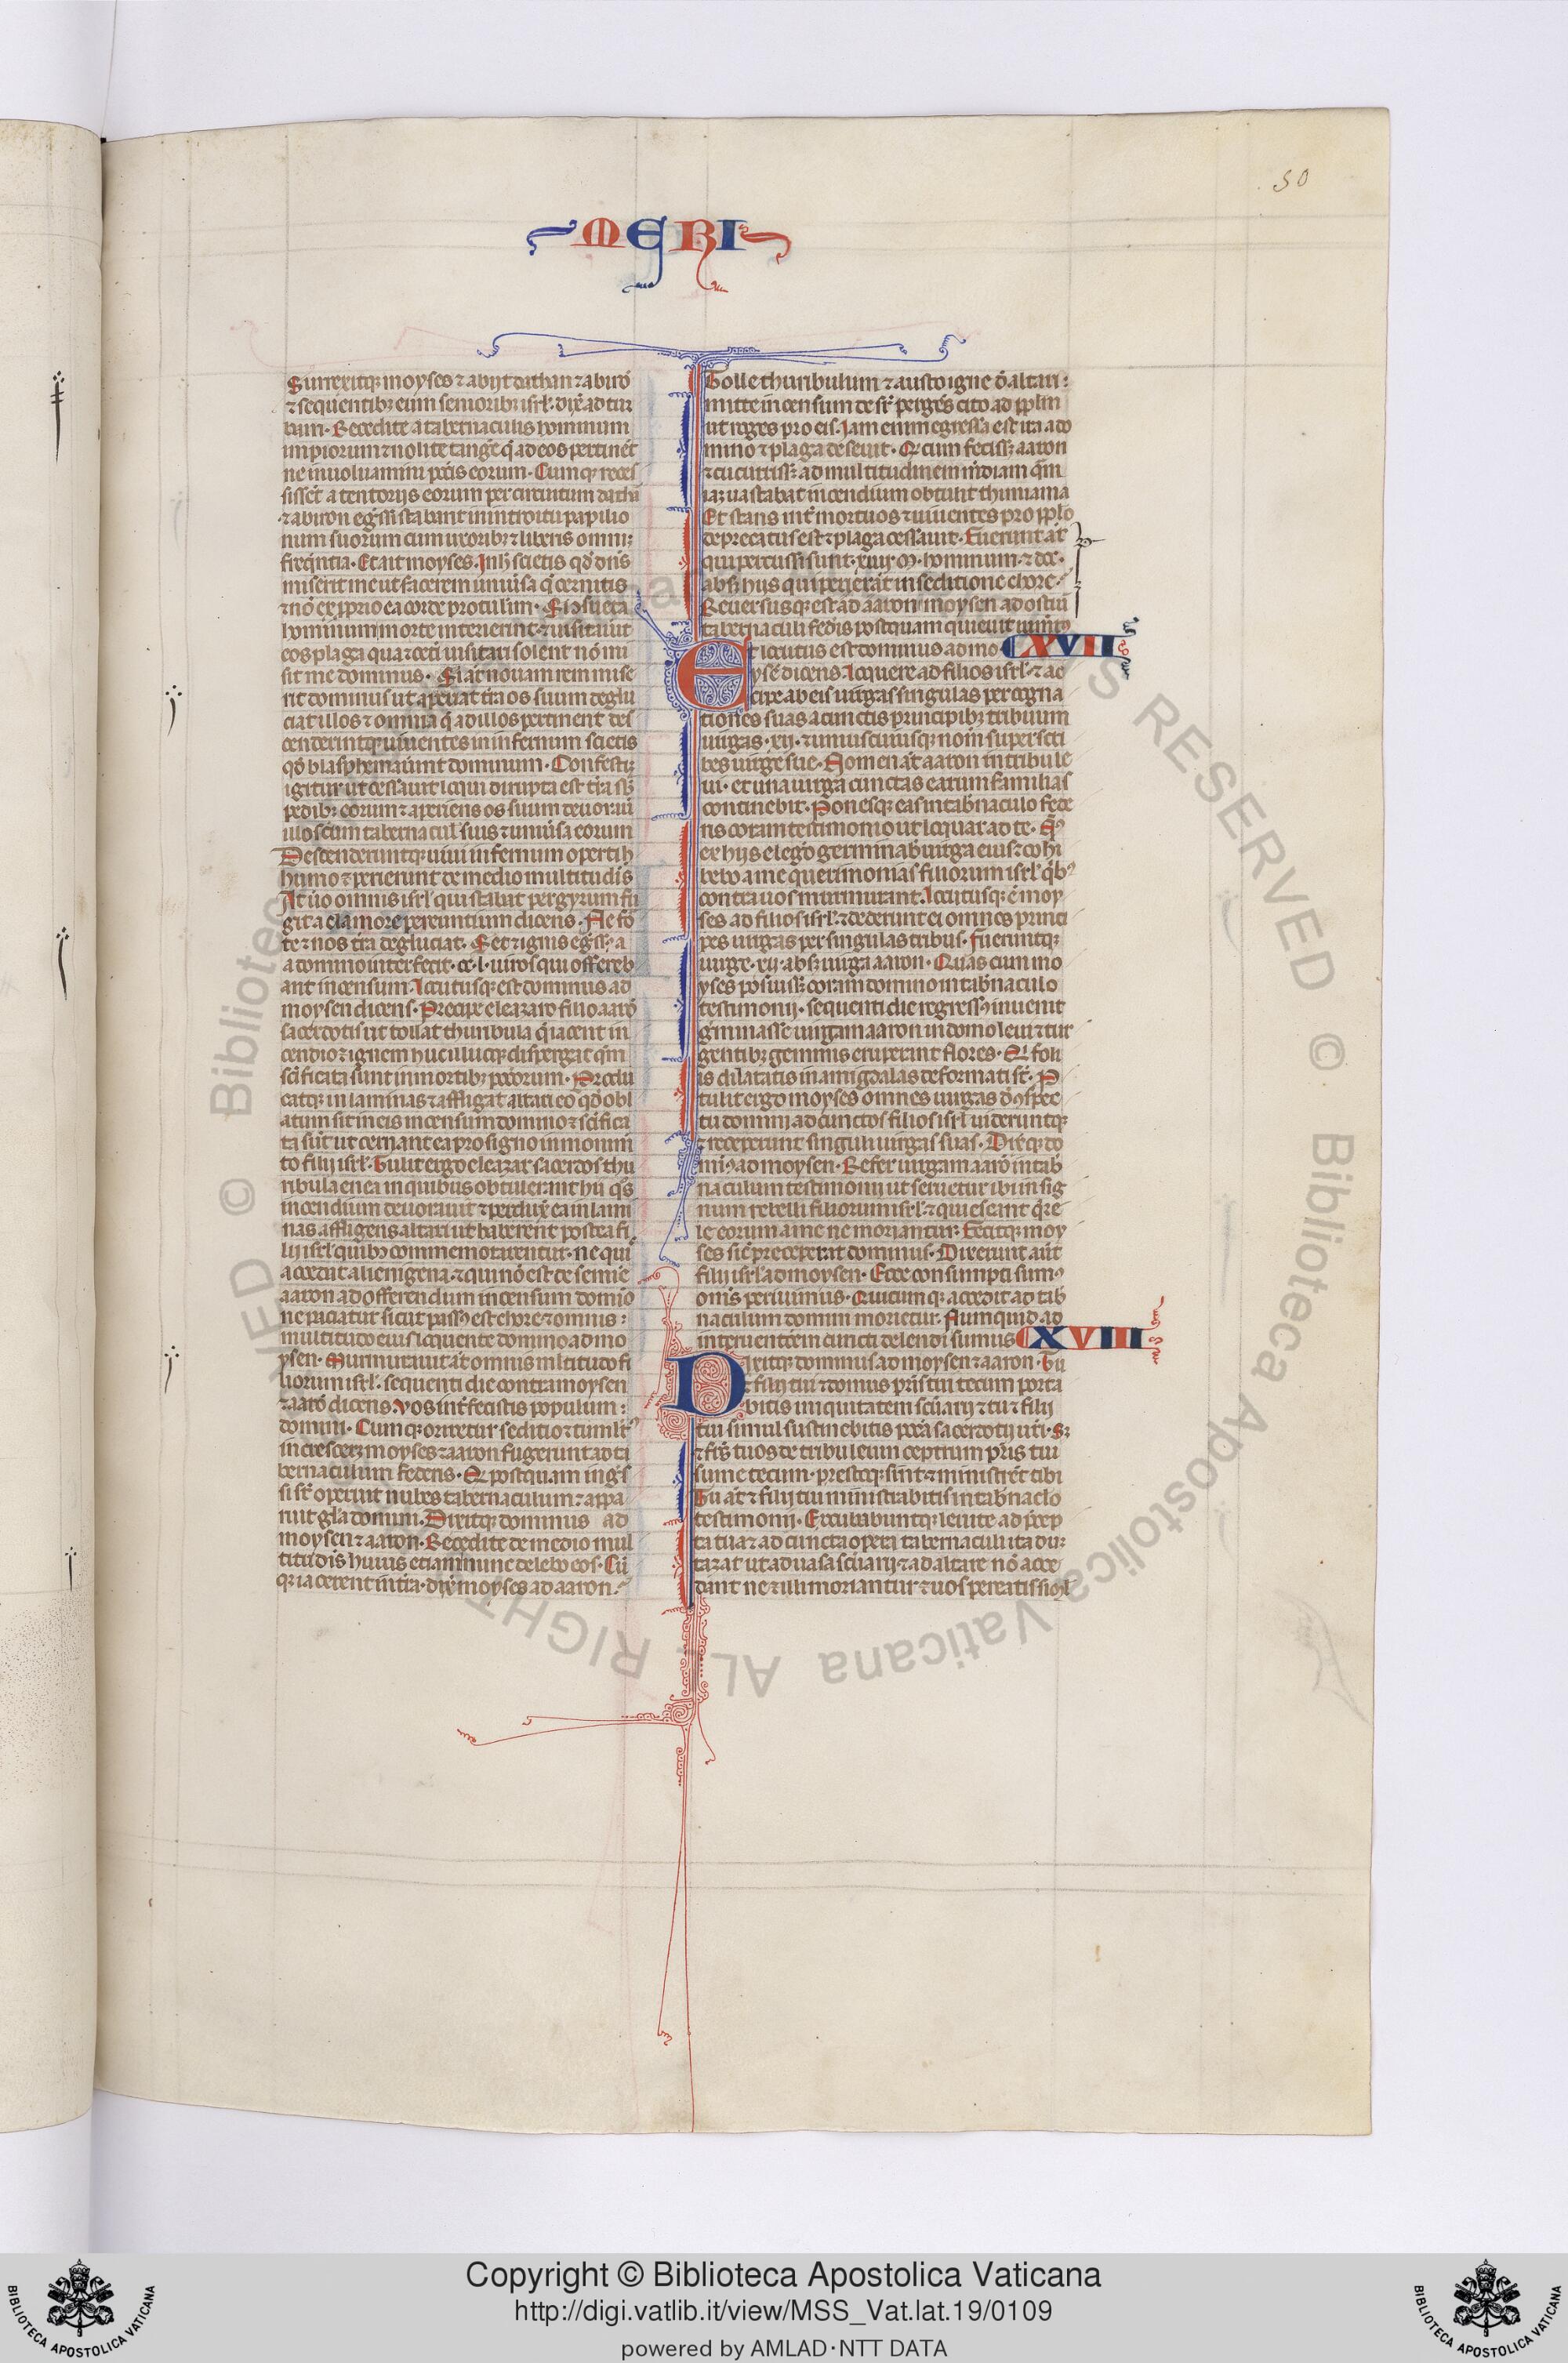 50
MERI
Surrexitq; moyses ⁊ abijt dathan ⁊ abirō
⁊ sequentib; eum seniorib; isrl'. dix̄ ad tur
bam. Recedite a tabernaculis hominum
impiorum ⁊ nolite tangē q̄ ad eos pertinēt
ne inuoluamini pctīs eorum. Cumq; reces
sissēt a tentorijs eorum per circuitum dathā
⁊ abiron egssi stabant in introitu papilio
num suorum cum uxorib; ⁊ liberis omniq;
freqntia. Et ait moyses. Inh̄ scietis qd̄ dn̄s
miserit me ut facerem uniūsa q̄ cernitis
⁊ nō ex ꝓprio ea corde protulim. Si ꝯsueta
hominum morte interierint. ⁊ uisitauit
eos plaga qua ⁊ cet̄i uisitari solent nō mi
sit me dominus. Si aūt nouam rem fece
rit dominus ut aperiat t̄ra os suum deglu
ciat illos ⁊ omnia q̄ ad illos pertinent des
cenderintq; uiuentes in infernum scietis
qd̄ blasphemauint dominum. Confestiȝ
igitur ut cessauit loqui dirupta est t̄ra sub
pedib; eorum ⁊ aperiens os suum deuorauit
illos cum tabernacul' suis ⁊ uniūsa eorum
Descenderuntq; uiui in fernum operti
humo ⁊ perierunt de medio multitudīs
At ūo omnis isrl' qui stabat per gyrum fu
git a clamore pereuntium dicens. Ne for
te ⁊ nos t̄ra degluciat. Set ⁊ ignis egssꝰ a
a domino interfecit. cc. l. uiros qui offereb
ant incensum. Locutusq; est dominus ad
moysen dicens. Precipe eleazaro filio aarō
sacerdotis ut tollat thuribula q̄ iacent in in
cendio ⁊ ignem huc illucq; dispergat qm̄
sc̄ificata sunt in mortib; pctorum. Produ
catq; in laminas ⁊ affigat altari eo qd̄ obl
atum sit in eis incensum domino ⁊ sc̄ifica
ta sūt ut cernant ea pro signo in monimē
to filij isrl'. Tulit ergo eleazar sacerdos thu
ribula enea in quibus obtulerant hij qs
incendium deuorauit ⁊ perdux̄ ea in lami
nas affligens altari ut haberent postea fi
lij isrl' quib; commemorarentur. ne quis
accedat alienigena. ⁊ qui nō est de semie
aaron ad offerendum incensum domio
ne paciatur sicut passꝰ est chore ⁊ omnis
multitudo eius loquente domino ad mo
ysen. Murmurauit aūt omnis mltitudo fi
liorum isrl'. sequenti die contra moysen
⁊ aarō dicens. Vos int̄fecistis populum
domini. Cumq; oriretur seditio ⁊ tumltꝰ
incresceret moyses ⁊ aaron fugerunt ad ta
bernaculum federis. Qd postquam ings
si st̄ operuit nubes tabernaculum ⁊ appa
ruit gl̄a domini. Dixitq; dominus ad
moysen ⁊ aaron. Recedite de medio mul
titudīs huius etiam nunc delebo eos. Cū
q; iacerent in t̄ra. dix̄ moyses ad aaron.
Tolle thuribulum ⁊ austo igne d̄ altari
mitte incensum desr̄. pergēs cito ad pplm
ut roges pro eis. Iam enim egressa est ira a do
mino ⁊ plaga deseuit. Qd cum fecissȝ aaron
⁊ cucurrissȝ ad multitudinem mediam qm̄
iaȝ uastabat incendium obtulit thimiama
Et stans int̄ mortuos ⁊ uiuentes pro pplo
deprecatus est ⁊ plaga cessauit. Fuerunt aūt
qui percussi sunt. xiiij. M. hominum. ⁊ dcc.
absq; hijs qui perierāt in seditione chore.
Reuersusq; est ad aaron moysen ad ostiū
tabernaculi fed̄is postquam quieuit interitꝰ
CXVII
Et locutus est dominus ad mo
ysē dicens. Loquere ad filios isrl'. ⁊ ac
cipe ab eis uirgas singulas per cogna
tiones suas a cunctis principib; tribuum
uirgas. xij. ⁊ uniuscuiusq; nom̄ superscri
bes uirge sue. Nomen aūt aaron in tribu le
ui. et una uirga cunctas earum familias
continebit. Ponesq; eas in tab̄naculo fede
ris coram testimonio ut loquar ad te. Quē
ex hijs elegō germinab uirga eius. ⁊ cohi
bebo a me querimonias filiorum isrl' qb;
contra uos murmurant. Locutusq; ē moy
ses ad filios isrl'. ⁊ dederunt ei omnes princi
pes uirgas per singulas tribus. fueruntq;
uirge. xij. absq; uirga aaron. Quas cum mo
yses posuissȝ coram domino in tab̄naculo
testimonij. sequenti die regressꝰ inuenit
gminasse uirgam aaron in domo leui ⁊ tur
gentib; gemmis eruperant flores. Qi foli
is dilatatis in amigdalas deformati st̄. P
tulit ergo moyses omnes uirgas d̄ ꝯspec
tu domini ad cunctos filios isrl' uideruntq;
⁊ receperunt singuli uirgas suas. Dix̄q; do
minꝰ ad moysen. Refer uirgam aarō in tab̄
naculum testimonij ut seruetur ibi in sig
num rebelliū filiorum isrl'. ⁊ quiescant qre
le eorum a me ne moriantur. Fecitq; moy
ses sic̄ preceperat dominus. Dixerunt aūt
filij isrl' ad moysen. Ecce consumpti sumꝰ
om̄s periuimus. Quicumq; accedit ad tab̄
naculum domini morietur. Num quid ad
internecionem cuncti delendi sumus
CXVIII
Dixitq; dominus ad moysen ⁊ aaron. Tu
⁊ filij tui ⁊ domus pr̄is tui tecum porta
bitis iniquitatem sc̄uarij ⁊ tu ⁊ filij
tui simul sustinebitis pctā sacerdotij ur̄i. Sȝ
⁊ fr̄s tuos de tribu leui ⁊ sceptrum pr̄is tui
sume tecum. prestoq; sint. ⁊ ministrēt tibi
Tu aūt ⁊ filij tui ministrabitis in tab̄naclo
testimonij. Excubabuntq; leuite ad p̄cep
ta tua ⁊ ad cuncta opera tabernaculi ita dū
taxat ut ad uasa sc̄uarij ⁊ ad altare nō acce
dant ne ⁊ illi moriantur ⁊ uos pereatis siml'
© Biblioteca Apostolica Vaticana ALL RIGHTS RESERVED
Copyright © Biblioteca Apostolica Vaticana
http://digi.vatlib.it/view/MSS_Vat.lat.19/0109
powered by AMLAD · NTT DATA
BIBLIOTECA APOSTOLICA VATICANA
BIBLIOTECA APOSTOLICA VATICANA